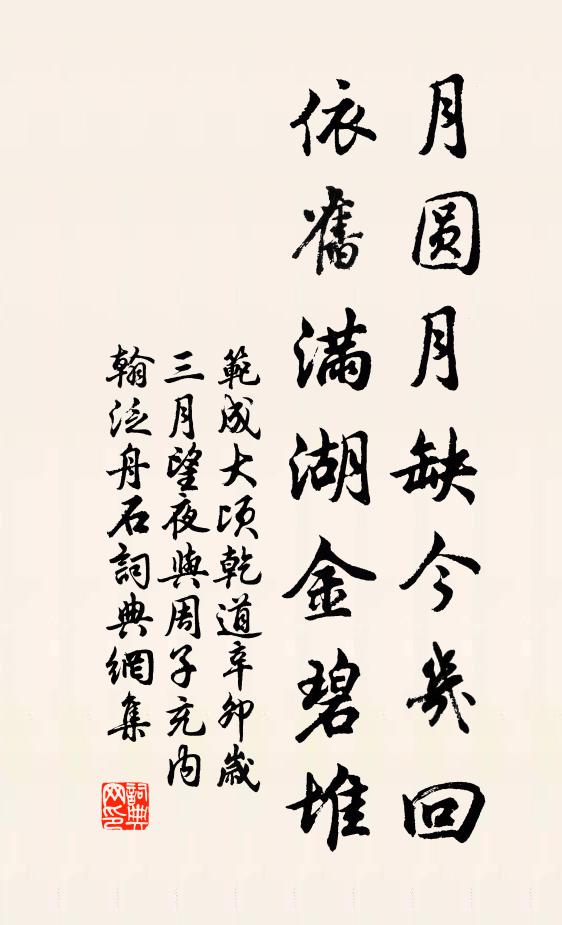 月圆月缺今幾回
依舊滿湖金碧堆
範成大頃乾道辛卯歲
三月望夜與周子充内
翰泛舟石詞典網集
詞典
网印